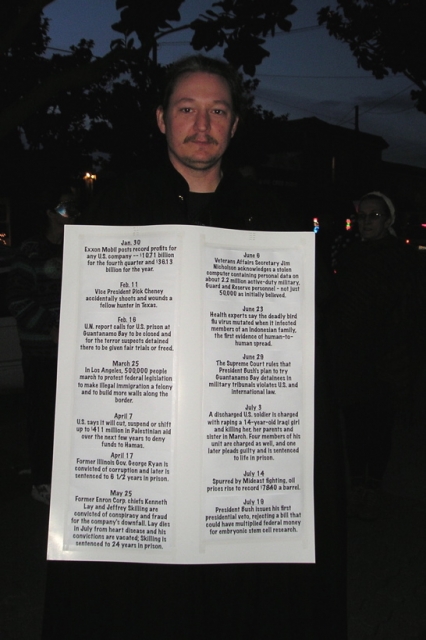 Jan. 30
Exxon Mobil posts record profits for
any U.S. company -- $10.71 billion
for the fourth quarter and $36.13
billion for the year.
Feb. 11
Vice President Dick Cheney
accidentally shoots and wounds a
fellow hunter in Texas.
Feb. 16
U.N. report calls for U.S. prison at
Guantanamo Bay to be closed and
for the terror suspects detained
there to be given fair trials or freed.
March 25
In Los Angeles, 500,000 people
march to protest federal legislation
to make illegal immigration a felony
and to build more walls along the
border.
April 7
U.S. says it will cut, suspend or shift
up to $411 million in Palestinian aid
over the next few years to deny
funds to Hamas.
April 17
Former Illinois Gov. George Ryan is
convicted of corruption and later is
sentenced to 6 1/2 years in prison.
May 25
Former Enron Corp. chiefs Kenneth
Lay and Jeffrey Skilling are
convicted of conspiracy and fraud
for the company's downfall. Lay dies
in July from heart disease and his
convictions are vacated; Skilling is
sentenced to 24 years in prison.
June 6
Veterans Affairs Secretary Jim
Nicholson acknowledges a stolen
computer containing personal data on
about 2.2 million active-duty military,
Guard and Reserve personnel - not just
50,000 as initially believed.
June 23
Health experts say the deadly bird
flu virus mutated when it infected
members of an Indonesian family,
the first evidence of human-to-
human spread.
June 29
The Supreme Court rules that
President Bush's plan to try
Guantanamo Bay detainees in
military tribunals violates U.S. and
international law.
July 3
A discharged U.S. soldier is charged
with raping a 14-year-old Iraqi girl
and killing her, her parents and
sister in March. Four members of his
unit are charged as well, and one
later pleads guilty and is sentenced
to life in prison.
July 14
Spurred by Mideast fighting, oil
prices rise to record $78.40 a barrel.
July 19
President Bush issues his first
presidential veto, rejecting a bill that
could have multiplied federal money
for embryonic stem cell research.